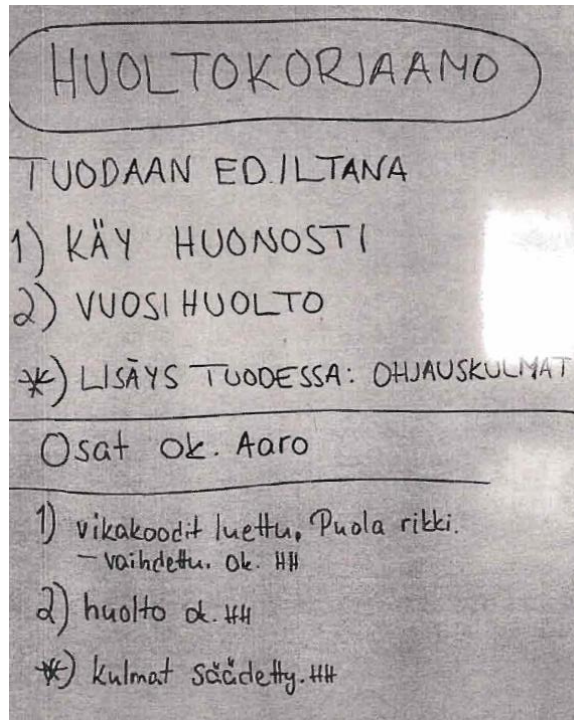 HUOLTOKORJAAMO
TUODAAN ED.ILTANA
1) KÄY HUONOSTI
2) VUOSIHUOLTO
*) LISÄYS TUODESSA: OHJAUSKULMAT
Osat ok. Aaro
1) vikakoodit luettu. Puola rikki.
– vaihdettu. ok. HH
2) huolto ok. HH
*) kulmat säädetty. HH